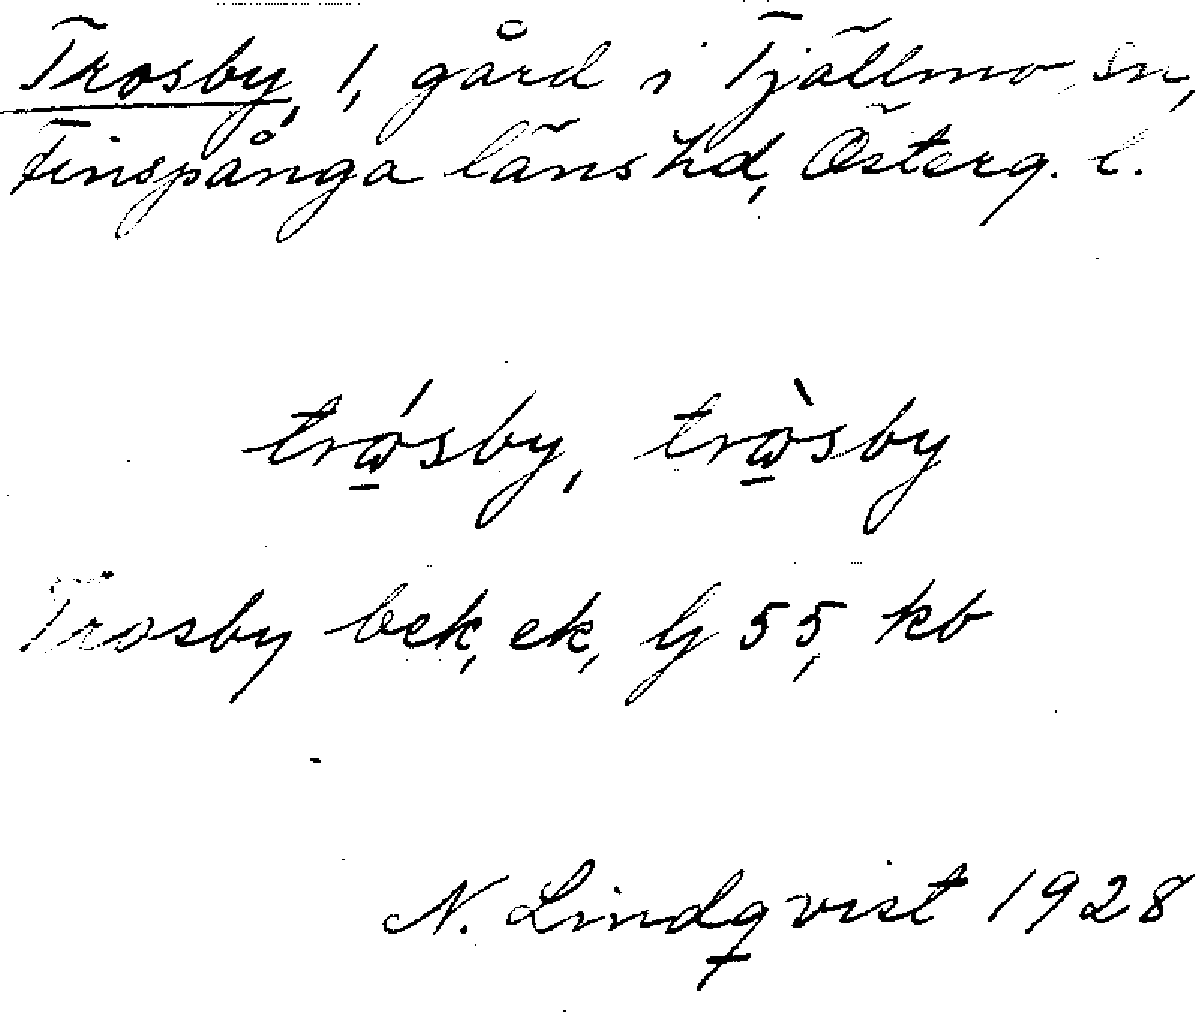 Trosby, 1, gård i Tjällmo sn,
Finspånga läns hd, Österg. l.
trɷ́sby, trɷ̀sby
Trosby bek, ek, G 55, kb
N. Lindqvist 1928